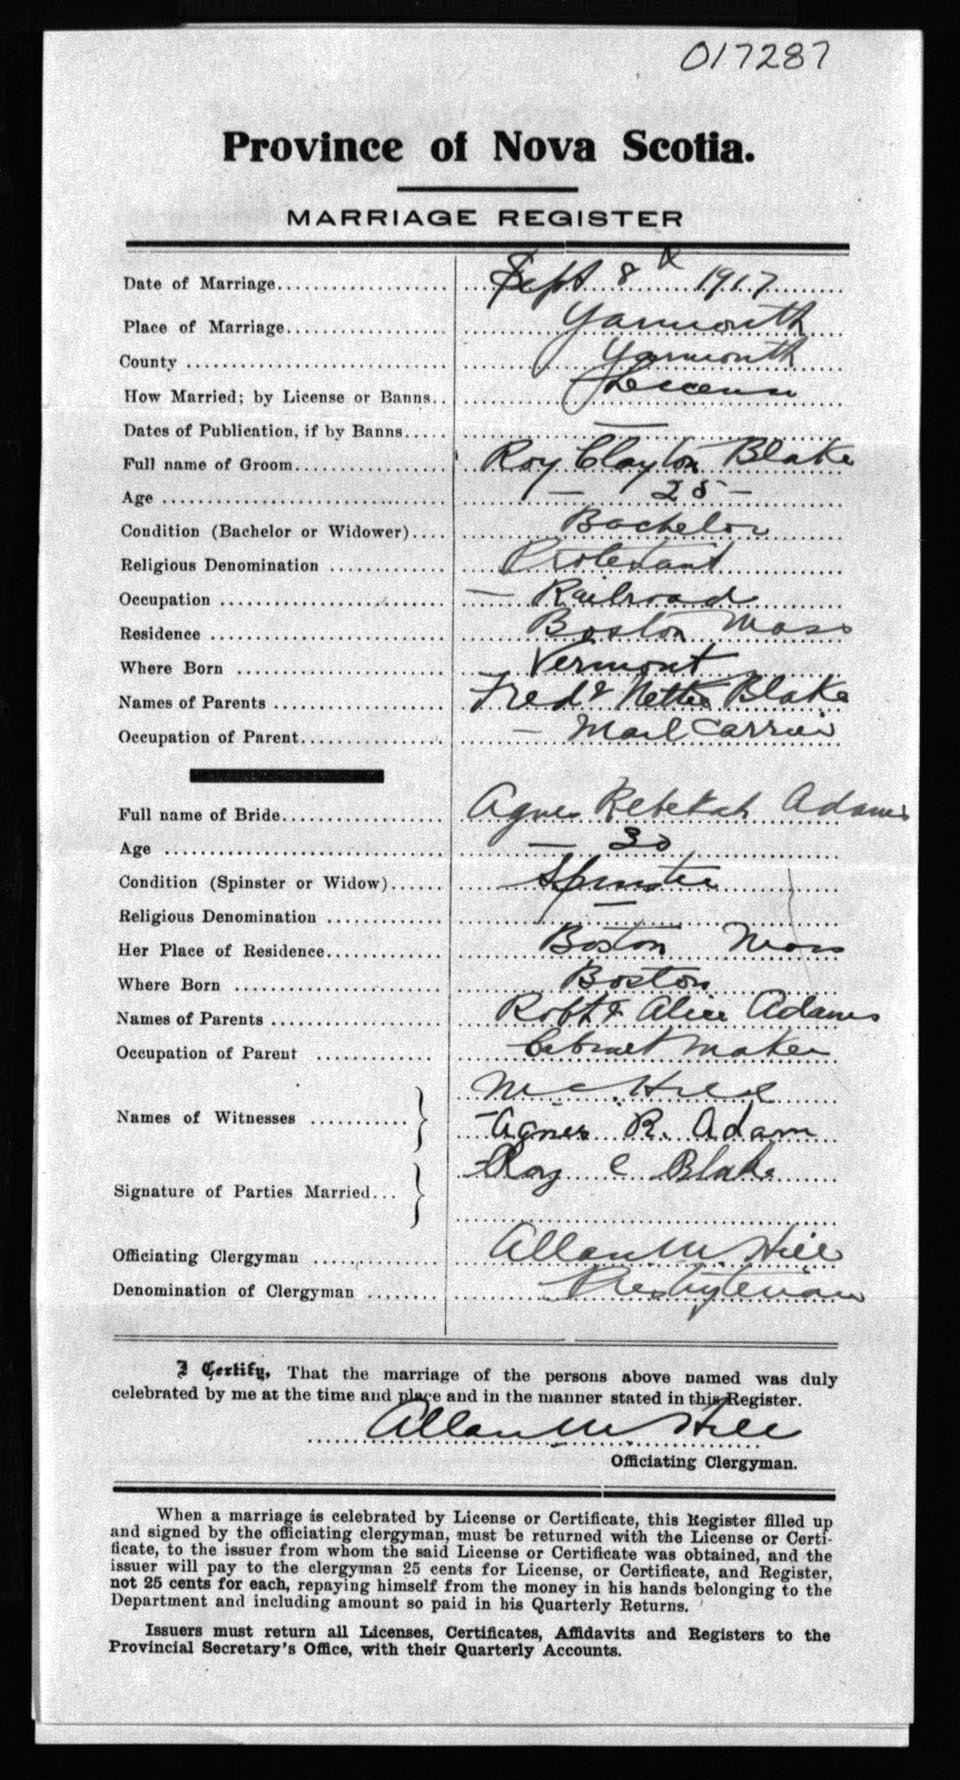 017287
Province of Nova Scotia.
MARRIAGE REGISTER
Date of Marriage Sept 8th 1917
Place of Marriage Yarmouth
County Yarmouth
How Married; by License or Banns License
Dates of Publication, if by Banns —
Full name of Groom Roy Clayton Blake
Age — 28 —
Condition (Bachelor or Widower) Bachelor
Religious Denomination Protestant
Occupation — Railroad
Residence Boston Mass
Where Born Vermont
Names of Parents Fred & Nettie Blake
Occupation of Parent — Mail Carrier
Full name of Bride Agnes Rebekah Adams
Age — 30
Condition (Spinster or Widow) Spinster
Religious Denomination —
Her Place of Residence Boston Mass
Where Born Boston
Names of Parents Robt & Alice Adams
Occupation of Parent Cabinet Maker
Names of Witnesses Hill
Agnes R. Adam
Signature of Parties Married Roy C Blake
Officiating Clergyman Allan M. Hill
Denomination of Clergyman Presbyterian
I Certify, That the marriage of the persons above named was duly
celebrated by me at the time and place and in the manner stated in this Register.
Allan M Hill
Officiating Clergyman.
When a marriage is celebrated by License or Certificate, this Register filled up
and signed by the officiating clergyman, must be returned with the License or Certi-
ficate, to the issuer from whom the said License or Certificate was obtained, and the
issuer will pay to the clergyman 25 cents for License, or Certificate, and Register,
not 25 cents for each, repaying himself from the money in his hands belonging to the
Department and including amount so paid in his Quarterly Returns.
Issuers must return all Licenses, Certificates, Affidavits and Registers to the
Provincial Secretary's Office, with their Quarterly Accounts.